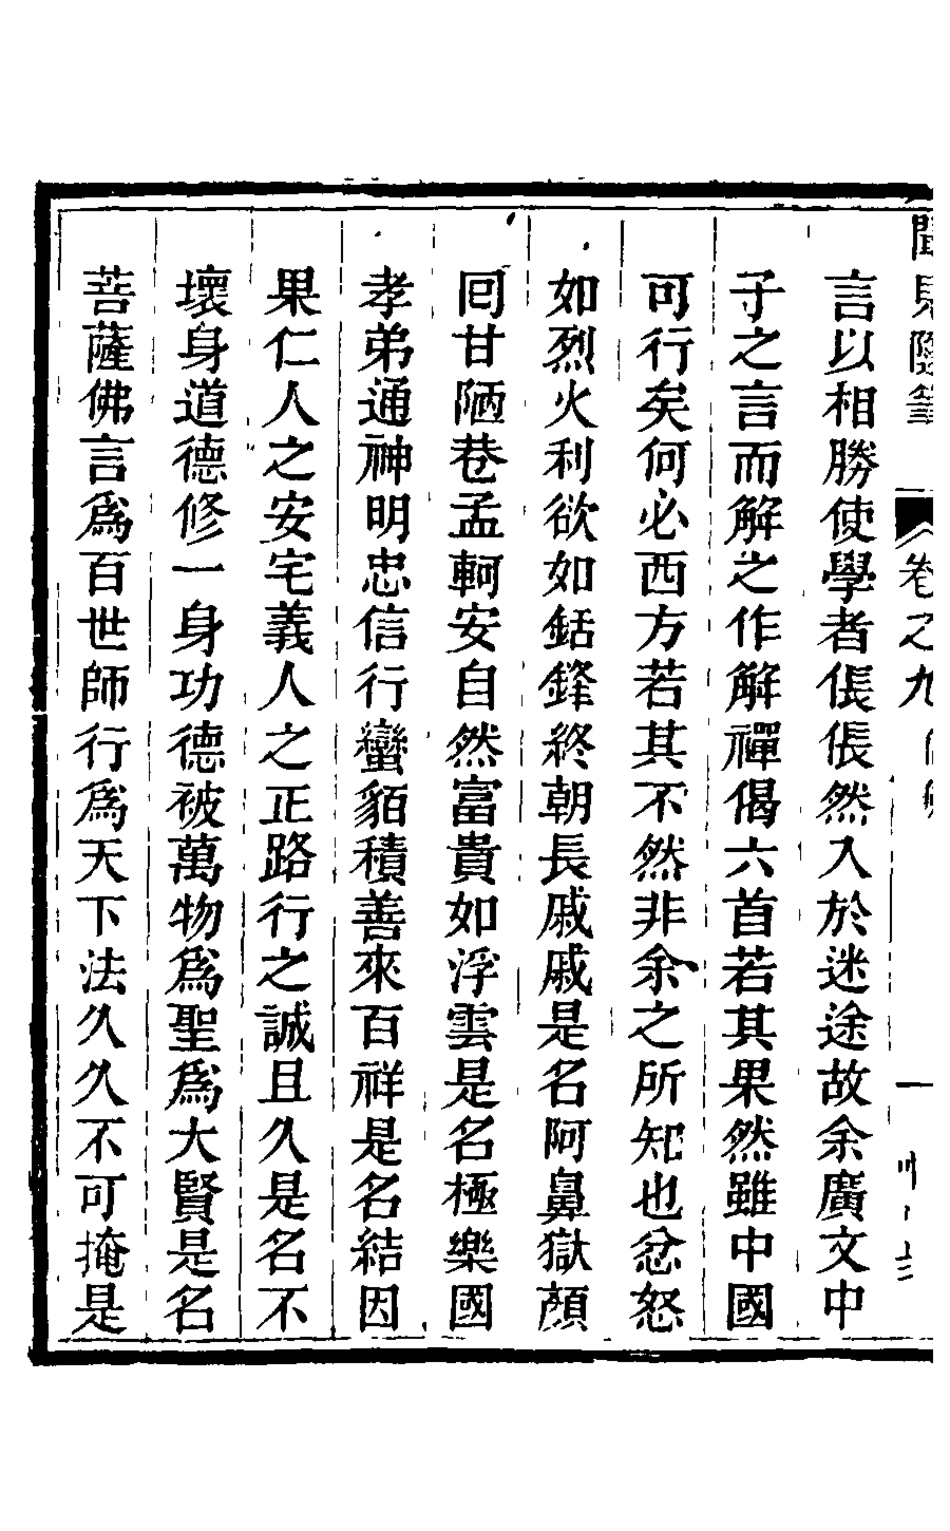 聞見隨筆 卷之九
言以相勝使學者倀倀然入於迷途故余廣文中
子之言而解之作解禪偈六首若其果然雖中國
可行矣何必西方若其不然非余之所知也忿怒
如烈火利欲如銛鋒終朝長戚戚是名阿鼻獄顔
囘甘陋巷孟軻安自然富貴如浮雲是名極樂國
孝弟通神明忠信行蠻貊積善來百祥是名結因
果仁人之安宅義人之正路行之誠且久是名不
壞身道德修一身功德被萬物爲聖爲大賢是名
菩薩佛言爲百世師行爲天下法久久不可掩是